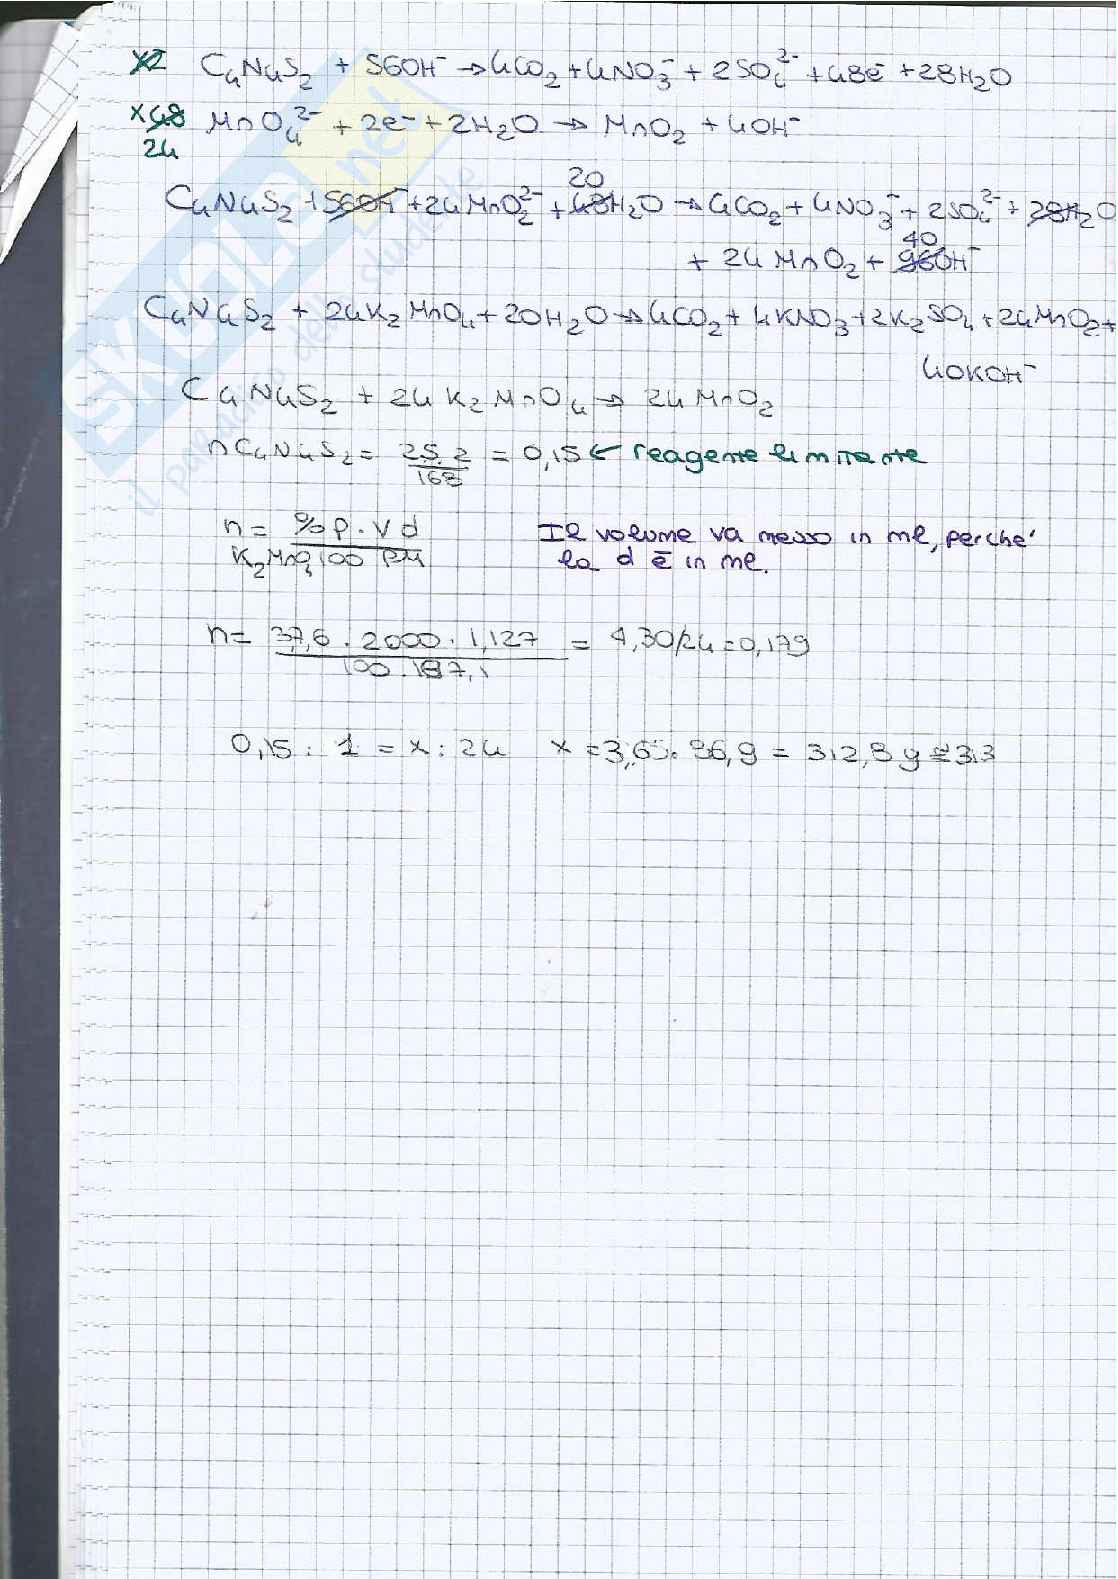 x2 C4N4S2 + 56OH⁻ → 4CO2 + 4NO3⁻ + 2SO4²⁻ + 48e⁻ + 28H2O
x48 MnO4²⁻ + 2e⁻ + 2H2O → MnO2 + 4OH⁻
24
20
C4N4S2 + 56OH⁻ + 24MnO2²⁻ + 48H2O → 4CO2 + 4NO3⁻ + 2SO4²⁻ + 28H2O
40
+ 24MnO2 + 96OH⁻
C4N4S2 + 24K2MnO4 + 20H2O → 4CO2 + 4KNO3 + 2K2SO4 + 24MnO2 +
40KOH⁻
C4N4S2 + 24K2MnO4 → 24MnO2
nC4N4S2 = 25,2/168 = 0,15 ← reagente limitante
n K2MnO4 = %p · V d / 100 PM Il volume va messo in ml, perche'
la d è in ml.
n = 37,6 · 2000 · 1,127 / 100 · 197,1 = 4,30/24 = 0,179
0,15 : 1 = x : 24 x = 3,6 · 86,9 = 312,8 g ≅ 313
SKUOLA.net
il paradiso dello studente